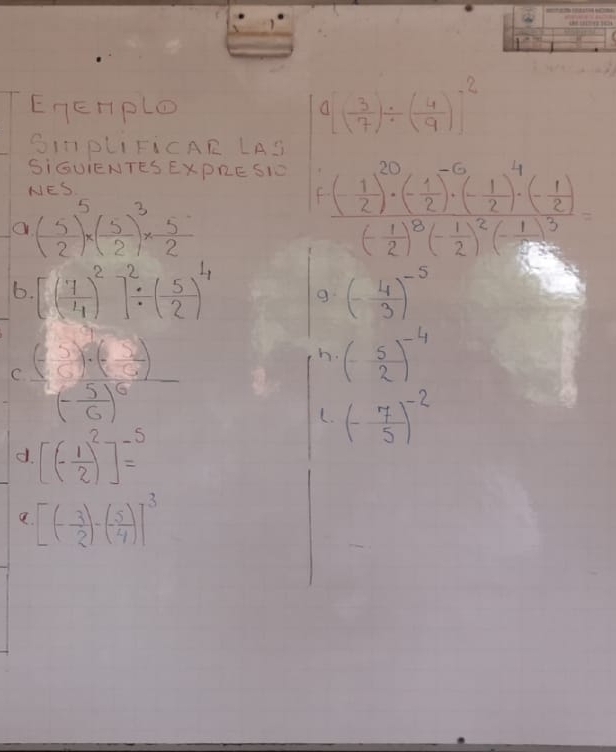 EJEMPLO
SIMPLIFICAR LAS
SIGUIENTES EXPRESIO
NES.
a. (5/2)^5 × (5/2)^3 × 5/2
b. [(7/4)^2]^2 ÷ (5/2)^4
c. (-5/6) · (-5/6) / (-5/6)^6
d. [(-1/2)^2]^-5 =
e. [(-3/2) - (5/4)]^3
[(3/7) ÷ (4/9)]^2
f. (-1/2)^20 · (-1/2)^-6 · (-1/2)^4 · (-1/2) / (-1/2)^8 (-1/2)^2 (-1/2)^3 =
g. (-4/3)^-5
h. (-5/2)^-4
i. (-7/5)^-2